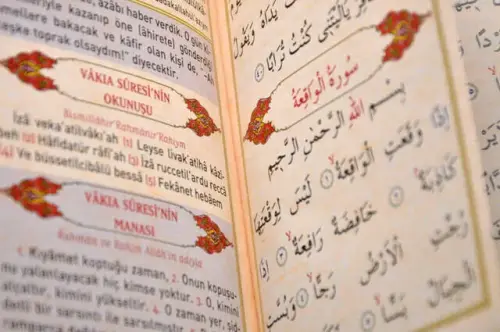 azâbı haber verdik. O gün kişi
eriyle kazanıp öne (âhirete) gönderdiği
mellere bakacak ve kâfir olan kişi de, "Ah
eşke toprak olsaydım!" diyecektir.
VÂKIA SÛRESİ'NİN
OKUNUŞU
Bismillâhir'Rahmânir'Rahîym
İzâ veka'atilvâkı'ah (1) Leyse livak'atihâ kâzi-
beh (2) Hâfidatür râfi'ah (3) İzâ ruccetil'ardu reccâ
(4) Ve büssetilcibâlü bessâ (5) Fekânet hebâem
VÂKIA SÛRESİ'NİN
MANASI
Rahmân ve Rahîm Allâh'ın adıyla
1. Kıyâmet koptuğu zaman, 2. Onun kopuşu-
nu yalanlayacak hiç kimse yoktur. 3. O, kimini
alçaltır, kimini yükseltir. 4. O zaman yer, şid-
detli bir sarsıntı ile sarsılmıştır.
يَدَاهُ وَيَقُولُ
الْكَافِرُ يَا لَيْتَنِي كُنْتُ تُرَابًا ٤٠
سُورَةُ الْوَاقِعَةِ
بِسْمِ اللهِ الرَّحْمٰنِ الرَّحِيمِ
إِذَا وَقَعَتِ الْوَاقِعَةُ ١ لَيْسَ لِوَقْعَتِهَا
كَاذِبَةٌ ٢ خَافِضَةٌ رَافِعَةٌ ٣ إِذَا
رُجَّتِ الْأَرْضُ رَجًّا ٤ وَبُسَّتِ
الْجِبَالُ بَسًّا ٥